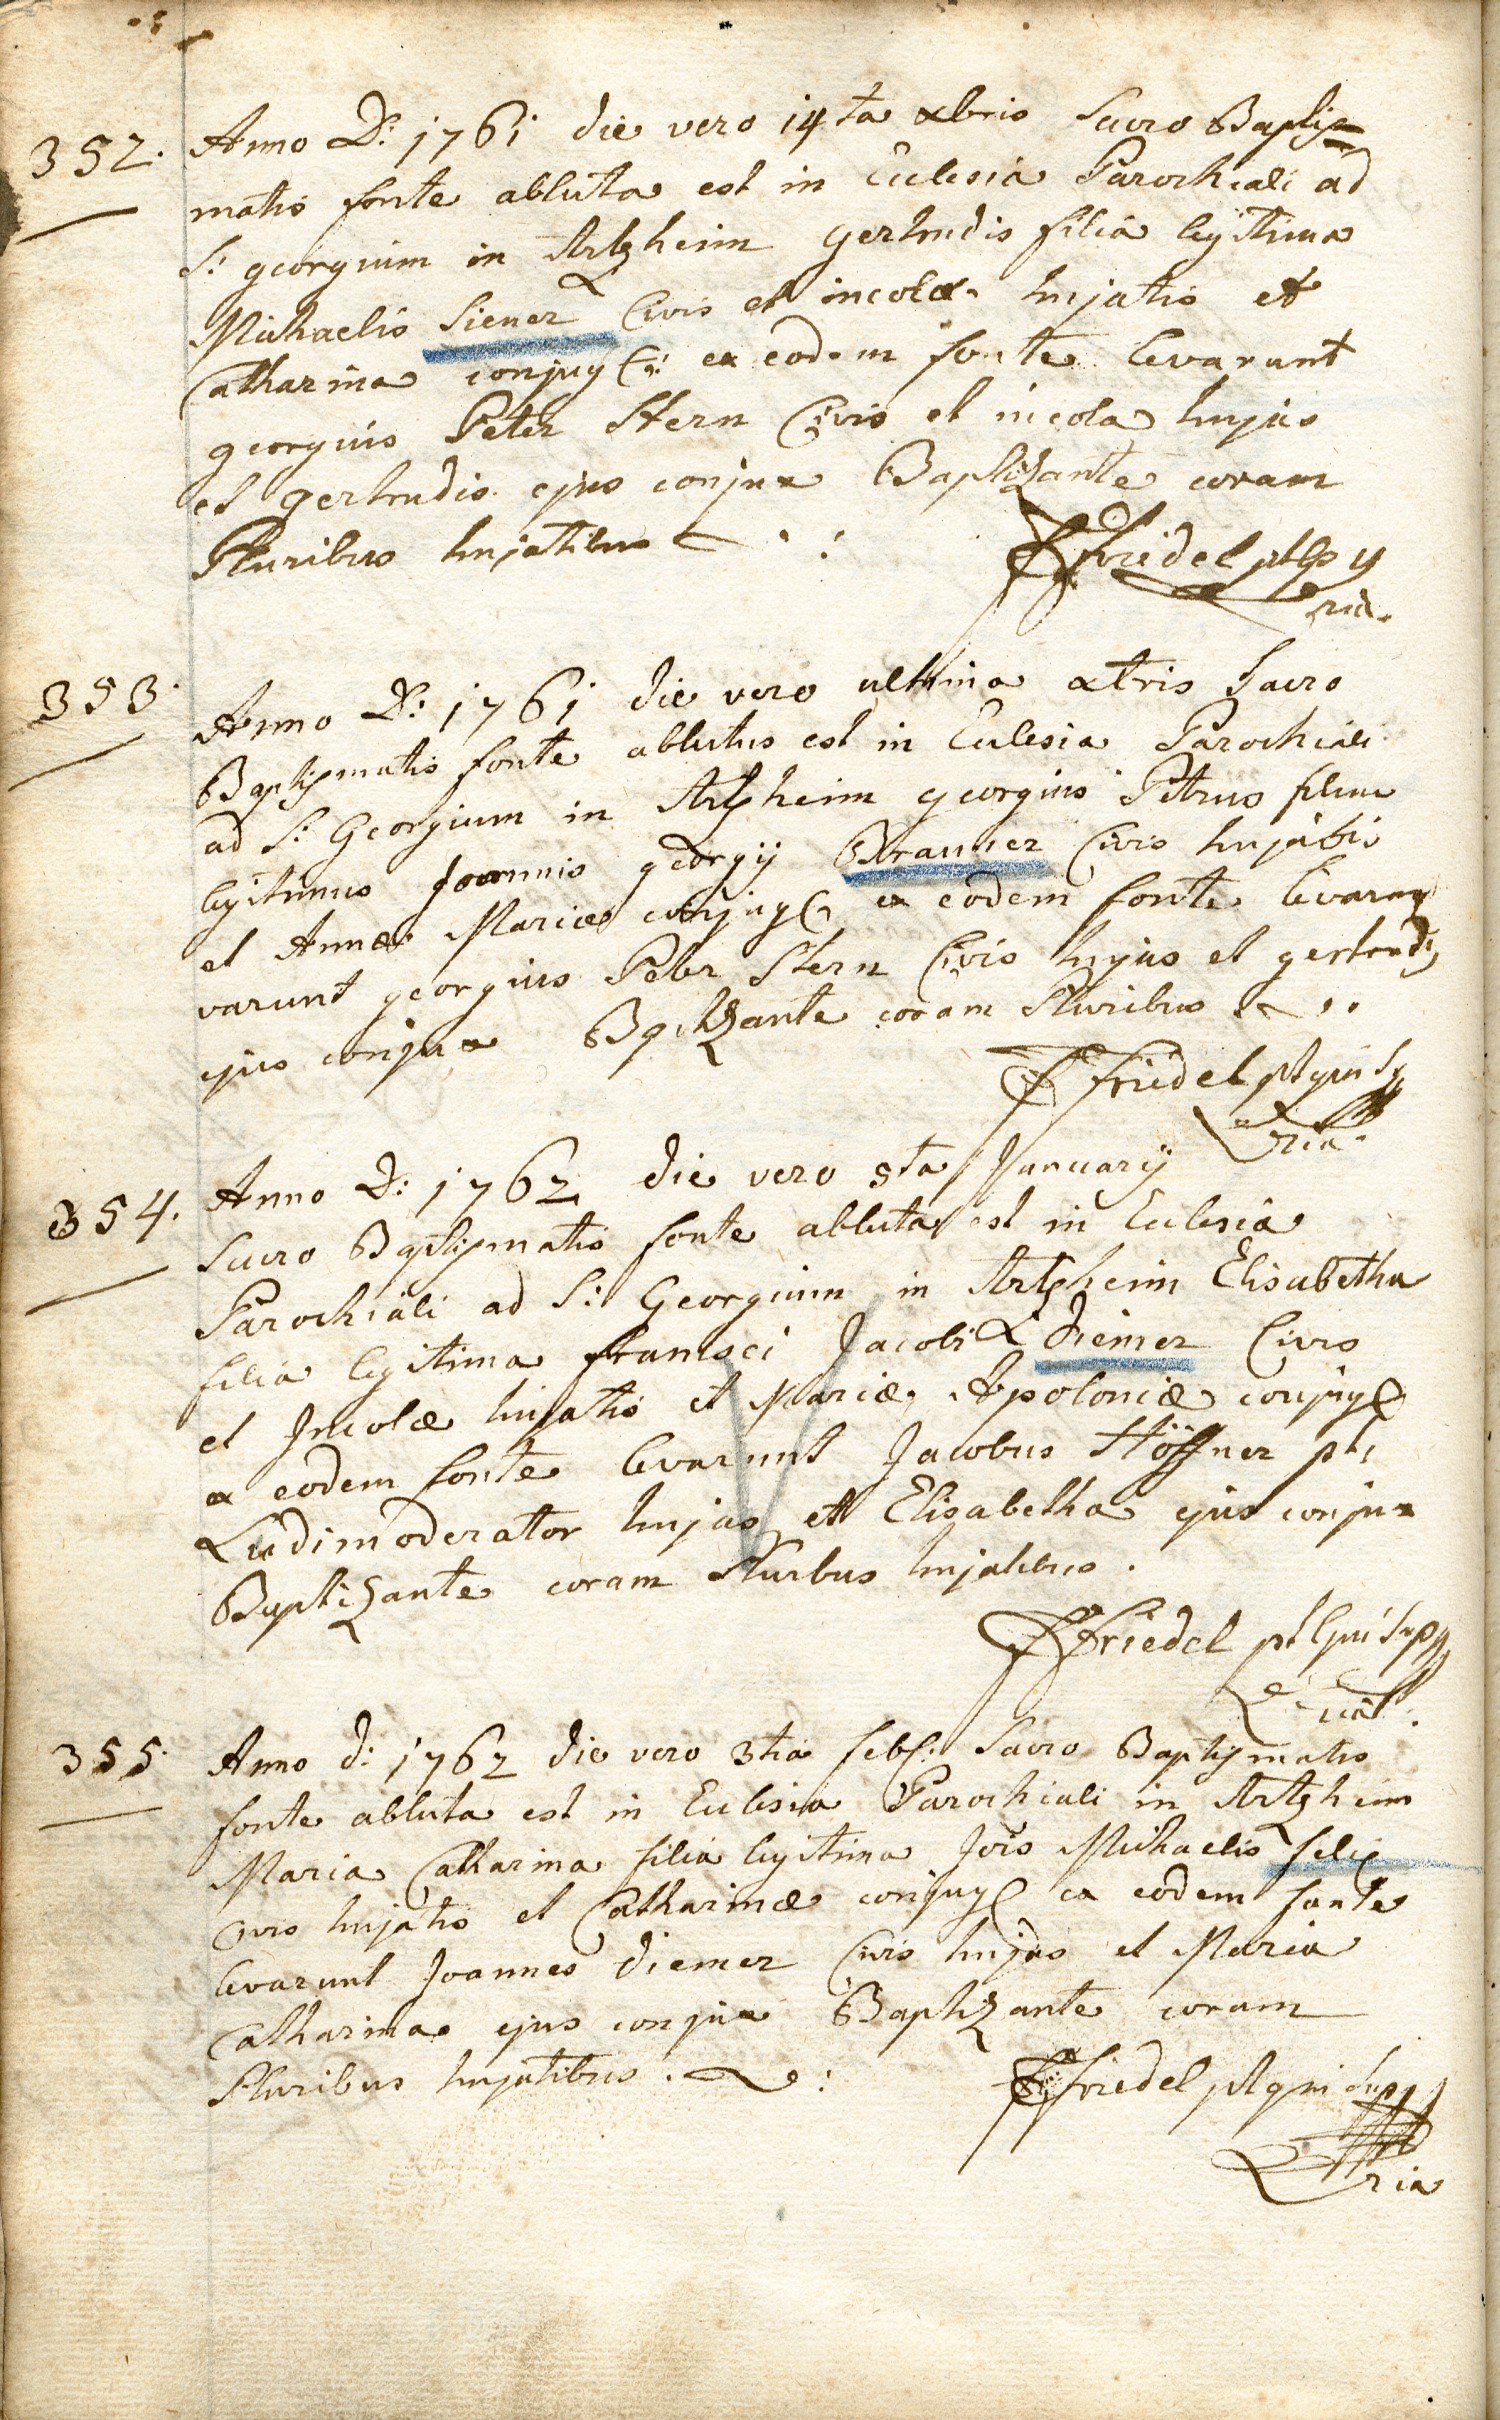 352. Anno D: 1761 die vero 14ta xbris Sacro Baptis=
matis fonte abluta est in Ecclesia Parochiali ad
S: georgium in Artzheim gertrudis filia legitima
Michaelis Siener Civis et incolæ hujatis et
Catharina conjug: ex eodem fonte levarunt
georgius Peter Stern Civis et incola hujus
et gertrudis ejus conjux Baptizante coram
Pluribus hujatibus
Friedel
353. Anno D: 1761 die vero ultima xbris Sacro
Baptismatis fonte ablutus est in Ecclesia Parochiali
ad S: Georgium in Artzheim georgius Petrus filius
legitimus Joannis georgij Brauner Civis hujatis
et Annæ Mariæ conjug ex eodem fonte levarun
varunt georgius Peter Stern Civis hujus et gertrudis
ejus conjux Baptizante coram Pluribus
Friedel
354. Anno D: 1762 die vero 5ta January
Sacro Baptismatis fonte abluta est in Ecclesia
Parochiali ad S: Georgium in Artzheim Elisabetha
filia legitima francisci Jacobi Diemer Civis
et Incolæ hujatis et Mariæ Apoloniæ conjug
ex eodem fonte levarunt Jacobus Höffner pti
Ludimoderator hujas et Elisabetha ejus conjux
Baptizante coram Plurbus hujatibus.
Friedel
355. Anno d: 1762 die vero 3tia feb: Sacro Baptismatis
fonte abluta est in Ecclesia Parochiali in Artzheim
Maria Catharina filia legitima Jois Michaelis felix
Civis hujatis et Catharinæ conjug ex eodem fonte
levarunt Joannes Diemer Civis hujas et Maria
Catharina ejus conjux Baptizante coram
Pluribus hujatibus.
Friedel